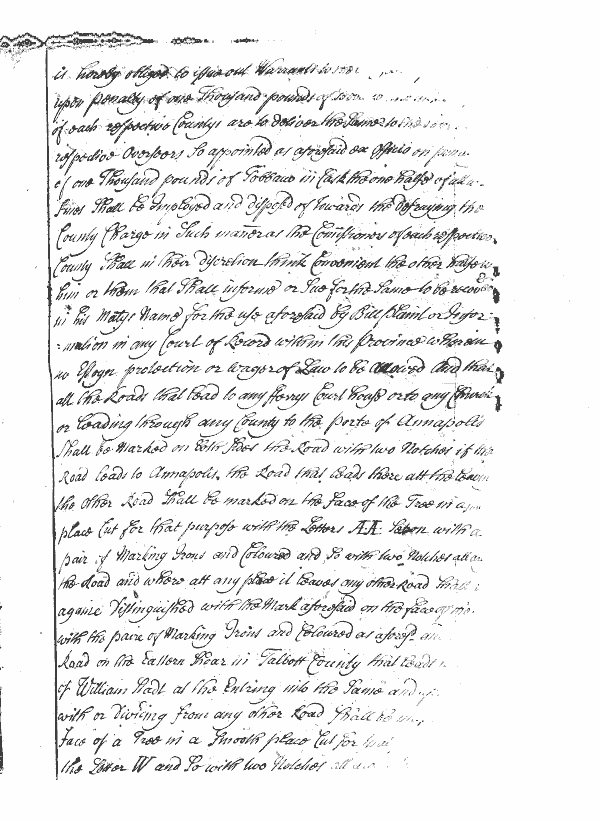 is hereby obliged to issue out Warrants to
upon penalty of one Thousand pounds of
of each respective Countys are to deliver the Same to the
respective Overseers So appointed as aforesaid ex Officio on
of one Thousand pounds of Tobacco in Cask the one halfe of
fines Shall be Imployed and disposed of towards the defraying the
County Charge in Such maner as the Comissioners of each respective
County Shall in their discretion think Convenient the other halfe
him or them that Shall informe or Sue for the Same to be
in his Matys Name for the use aforesaid by Bill plaint or Infor-
-mation in any Court of Record within this Province wherein
no Essoyn protection or wager of Law to be allowed And that
all the Roads that lead to any ferrys Court house or to any Church
or leading through any County to the porte of Annapolis
Shall be Marked on both Sides the Road with two Notches if the
Road leads to Annapolis the Road that leads there att the
the other Road Shall be marked on the face of the Tree in a
place Cut for that purpose with the Letters AA with a
pair of Marking Irons and Coloured and So with two Notches all
the Road and where att any place it leaves any other Road
againe distinguished with the Mark aforesaid on the face of
with the paire of Marking Irons and Coloured as aforesd
Road on the Eastern Shoar in Talbott County that leads
of William Stadt at the Entring into the Same and
with or divideing from any other Road Shall be
face of a Tree in a Smooth place Cut for that
the Letter W and So with two Notches all